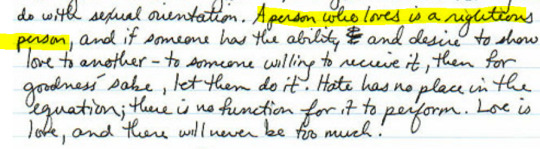 do with sexual orientation. A person who loves is a righteous
person, and if someone has the ability and desire to show
love to another - to someone willing to receive it, then for
goodness' sake, let them do it. Hate has no place in the
equation; there is no function for it to perform. Love is
love, and there will never be too much.